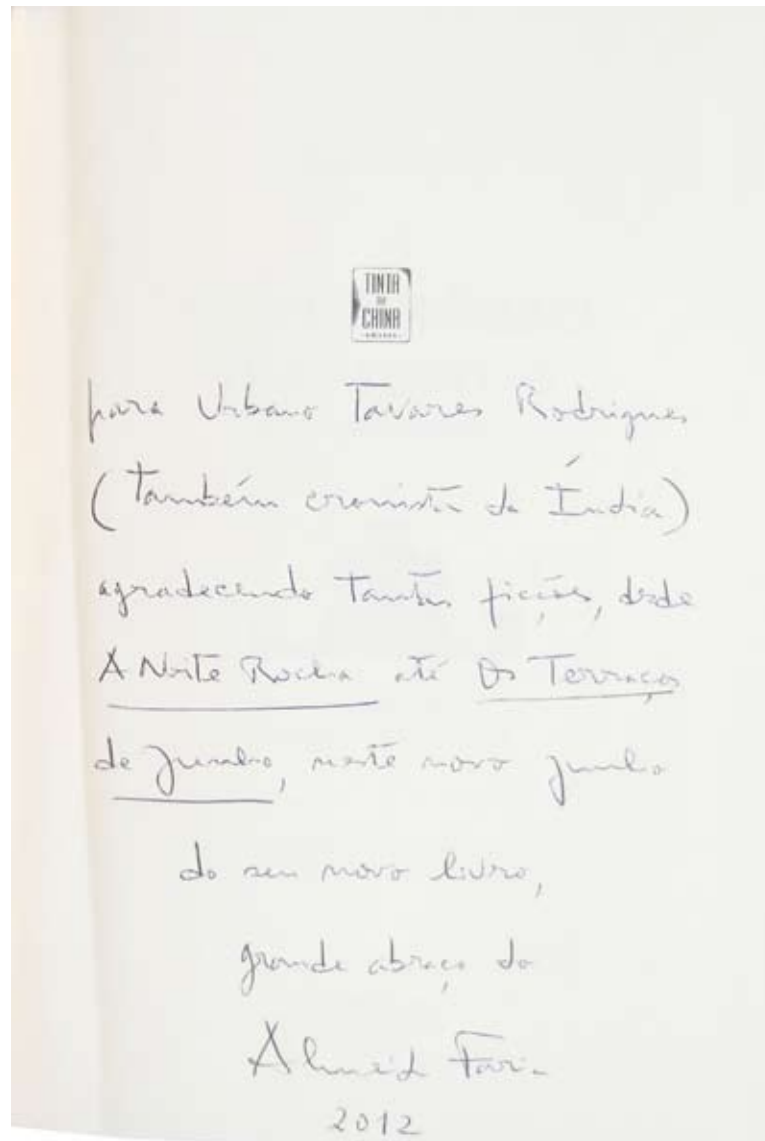 TINTA
DA
CHINA
para Urbano Tavares Rodrigues
(Também cronista da Índia)
agradecendo tantas ficções, desde
A Noite Roxa até Os Terraços
de Junho, neste novo junho
do seu novo livro,
grande abraço do
Almeida Faria
2012